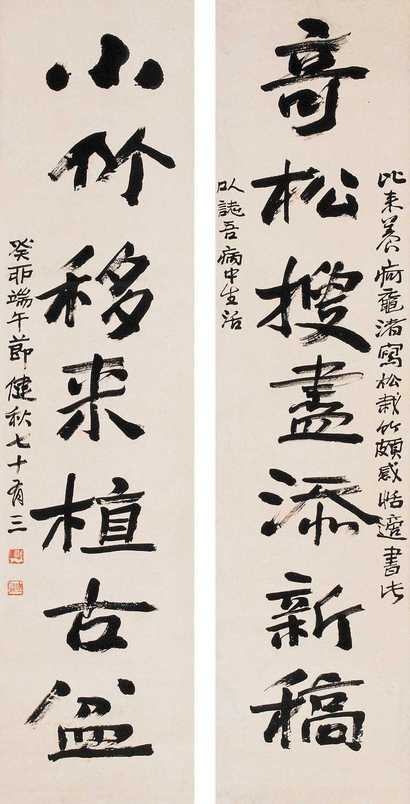 奇松搜盡添新稿
比来養疴黿渚寫松栽竹頗感恬適書此
以誌吾病中生活
小竹移来植古盆
癸卯端午節健秋七十有三